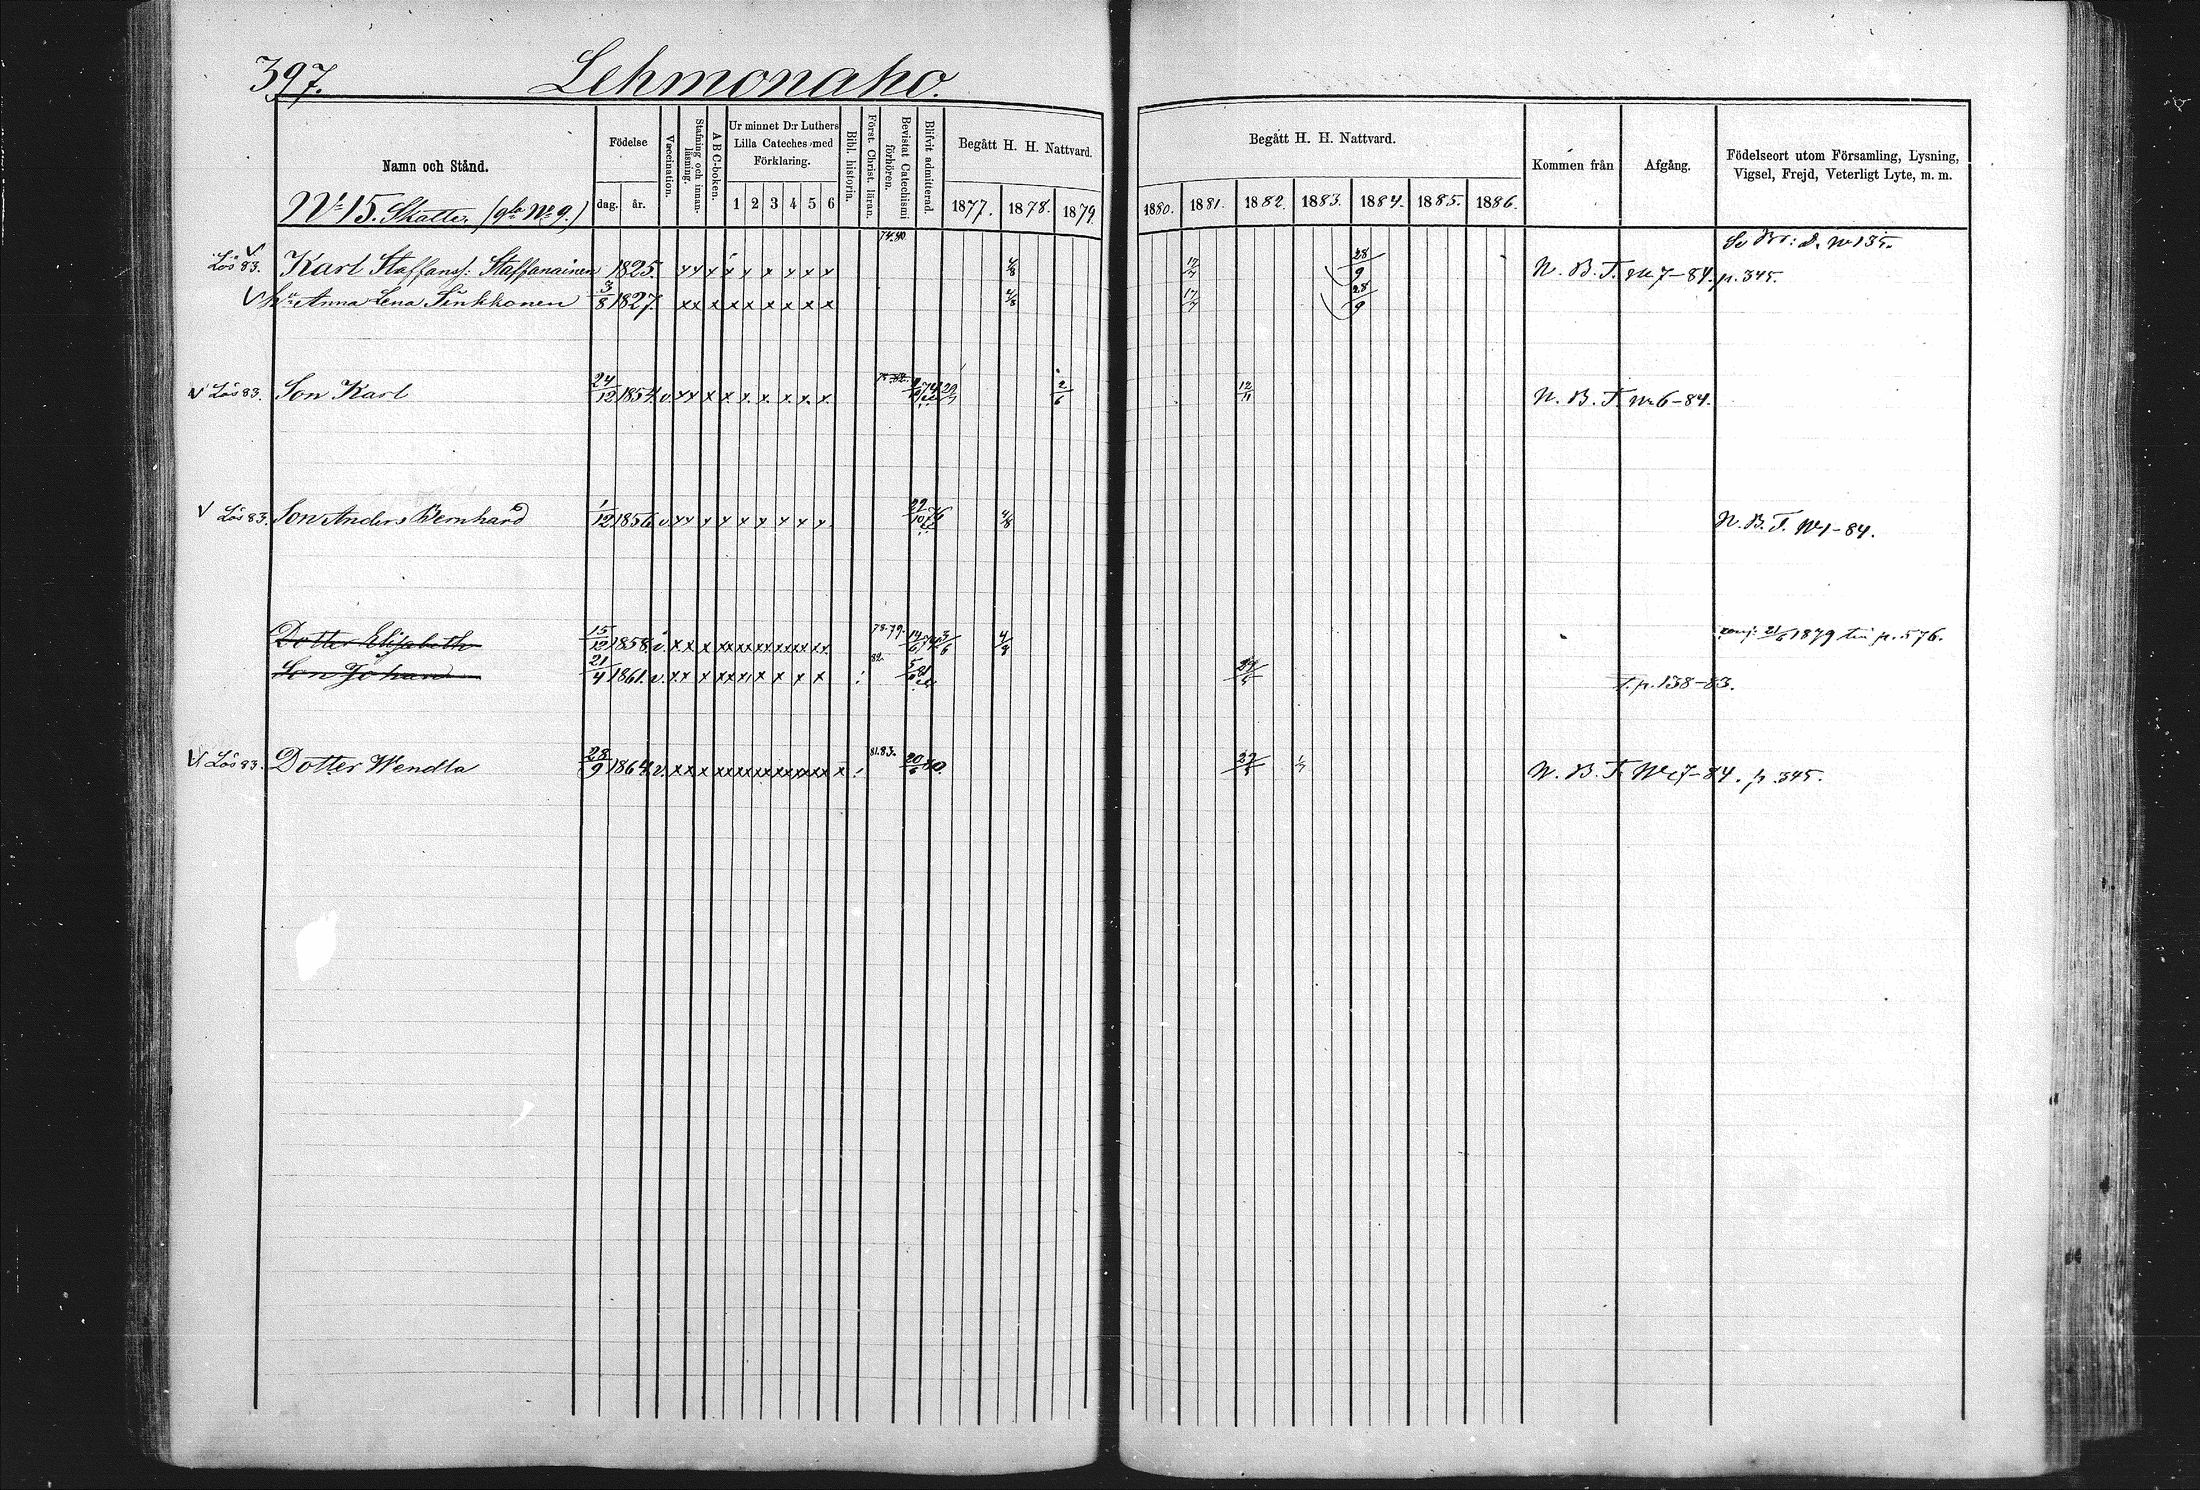 397. Lehmonaho.
Namn och Stånd. Födelse dag. år. Vaccination. Stafning och innanläsning. A B C-boken. Ur minnet D:r Luthers Lilla Cateches med Förklaring. 1 2 3 4 5 6 Bibl. historia. Först. Christ. läran. Bevistat Catechismi förhören. Blifvit admitterad. Begått H. H. Nattvard. 1877. 1878. 1879.
Begått H. H. Nattvard. 1880. 1881. 1882. 1883. 1884. 1885. 1886. Kommen från Afgång. Födelseort utom Församling, Lysning, Vigsel, Frejd, Veterligt Lyte, m. m.
No 15. Skatte,
Se Br: d. No 135.
Lös 83. Karl Staffanss: Staffanainen 1825. x x x x x x x x x 4/8 17/7 28/9 N. B. T. No 7-84. p. 345.
v Hu Anna Lena Tinkkonen 3/8 1827. x x x x x x x x x 4/8 17/7 28/9
v Lös 83. Son Karl 24/12 1854. v. x x x x x x x x x 2/6 12/11 N. B. T. No 6-84.
v Lös 83. Son Anders Bernhard 1/12 1856. v. x x x x x x x x x 22/10 76 4/8 N. B. T. No 1-84.
Dotter Elisabeth 15/12 1858. v. x x x xx xx xx xx xx 78.79. 14/6 4/8 21/6 1879 p. 576.
Son Johan 21/4 1861. v. x x x xx x x x x x 82. 5/6 81 T. p. 138-83.
v Lös 83. Dotter Wendla 28/9 1864. v. x x x xx xx xx xx xx x 81.83. 20/6 80. N. B. T. No 7-84. p. 345.